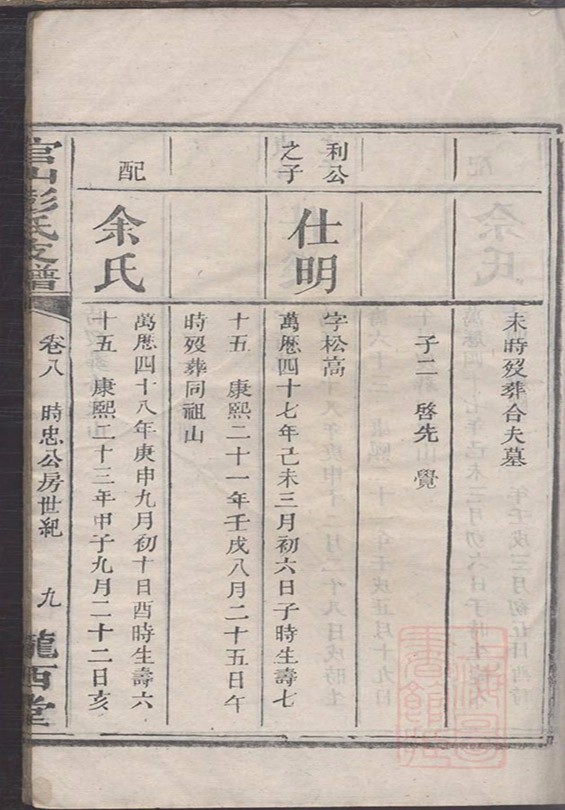 未時歿葬合夫墓
子二 啓先 覺
利公之子
仕明
字松高
萬厯四十七年己未三月初六日子時生壽七
十五 康熙二十一年壬戌八月二十五日午
時歿葬同祖山
配
余氏
萬厯四十八年庚申九月初十日酉時生壽六
十五 康熙二十三年甲子九月二十二日亥
官山彭氏支譜
卷八 時忠公房世紀 九
隴西堂